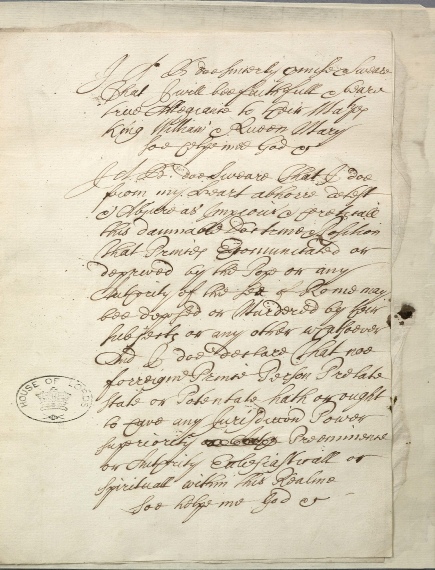 I A B doe sincerely promise & sweare
That I will bee faithfull & beare
true Allegiance to their Majties
King William & Queen Mary
Soe helpe mee God &c
I A B doe Sweare That I doe
from my Heart abhorre detest
& Abjure as Impious & Hereticall
this damnable Doctrine & Position
that Princes Excommunicated or
deprived by the Pope or any
Authority of the See of Rome may
bee deposed or Murdered by their
Subjects or any other whatsoever
And I doe declare That noe
forreigne Prince Person Prelate
State or Potentate hath or ought
to have any Jurisdiccon Power
Superiority Preeminence
or Authority Eclesiasticall or
Spirituall within this Realme
Soe helpe me God &c
HOUSE OF LORDS